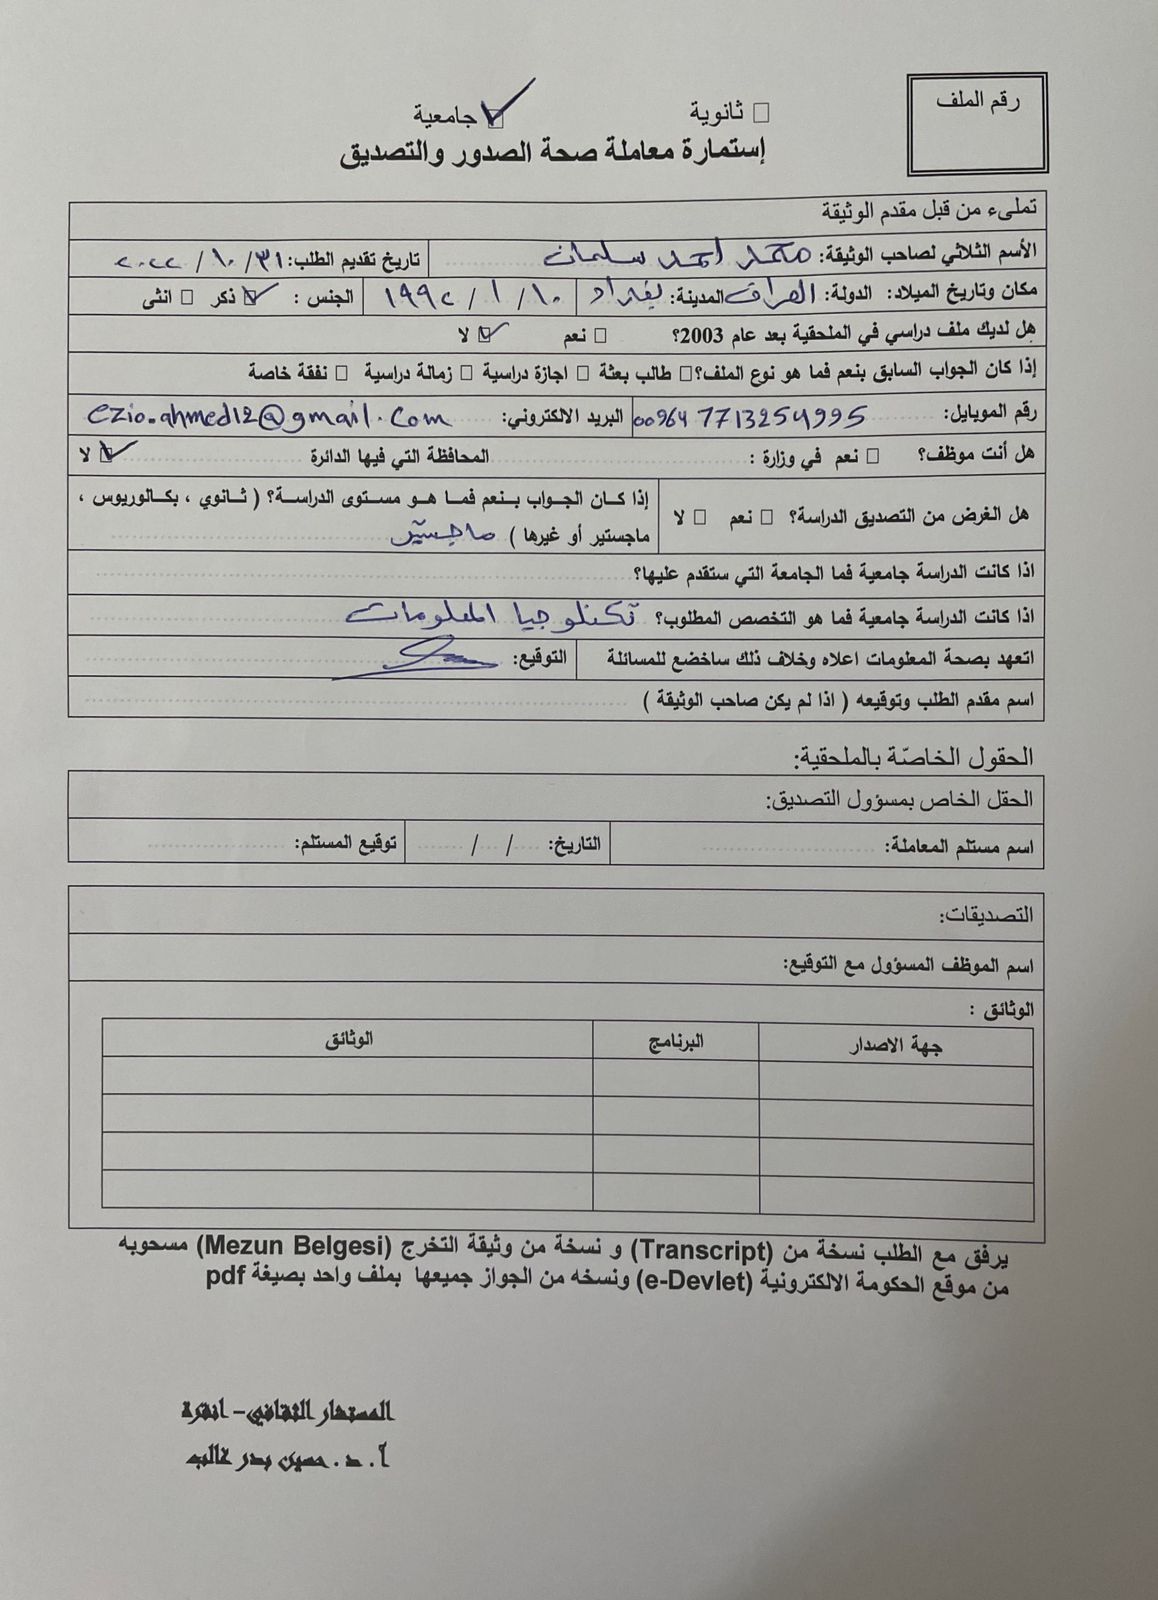 رقم الملف
□ ثانوية ☑ جامعية
إستمارة معاملة صحة الصدور والتصديق
تملىء من قبل مقدم الوثيقة
الأسم الثلاثي لصاحب الوثيقة: محمد احمد سلمان تاريخ تقديم الطلب: ٣١ / ١٠ / ٢٠٢٢
مكان وتاريخ الميلاد: الدولة: العراق المدينة: بغداد ١٠ / ١ / ١٩٩٢ الجنس : ☑ ذكر □ انثى
هل لديك ملف دراسي في الملحقية بعد عام 2003؟ □ نعم ☑ لا
إذا كان الجواب السابق بنعم فما هو نوع الملف؟ □ طالب بعثة □ اجازة دراسية □ زمالة دراسية □ نفقة خاصة
رقم الموبايل: 00964 7713254995 البريد الالكتروني: ezio.ahmed12@gmail.com
هل أنت موظف؟ □ نعم في وزارة : المحافظة التي فيها الدائرة ☑ لا
هل الغرض من التصديق الدراسة؟ □ نعم □ لا إذا كان الجواب بنعم فما هو مستوى الدراسة؟ ( ثانوي ، بكالوريوس ،
ماجستير أو غيرها ) ماجستير
اذا كانت الدراسة جامعية فما الجامعة التي ستقدم عليها؟
اذا كانت الدراسة جامعية فما هو التخصص المطلوب؟ تكنلوجيا المعلومات
اتعهد بصحة المعلومات اعلاه وخلاف ذلك ساخضع للمسائلة التوقيع:
اسم مقدم الطلب وتوقيعه ( اذا لم يكن صاحب الوثيقة )
الحقول الخاصّة بالملحقية:
الحقل الخاص بمسؤول التصديق:
اسم مستلم المعاملة: التاريخ: / / توقيع المستلم:
التصديقات:
اسم الموظف المسؤول مع التوقيع:
الوثائق :
جهة الاصدار البرنامج الوثائق
يرفق مع الطلب نسخة من (Transcript) و نسخة من وثيقة التخرج (Mezun Belgesi) مسحوبه
من موقع الحكومة الالكترونية (e-Devlet) ونسخه من الجواز جميعها بملف واحد بصيغة pdf
المستشار الثقافي - انقرة
أ . د . حسين بدر غالب